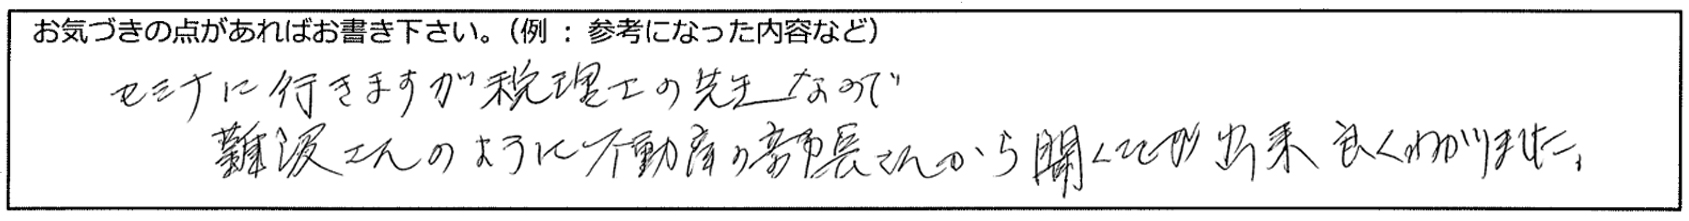 お気づきの点があればお書き下さい。（例：参考になった内容など）
セミナに行きますが税理士の先生なので
難波さんのように不動産の部長さんから聞くことが出来良くわかりました。